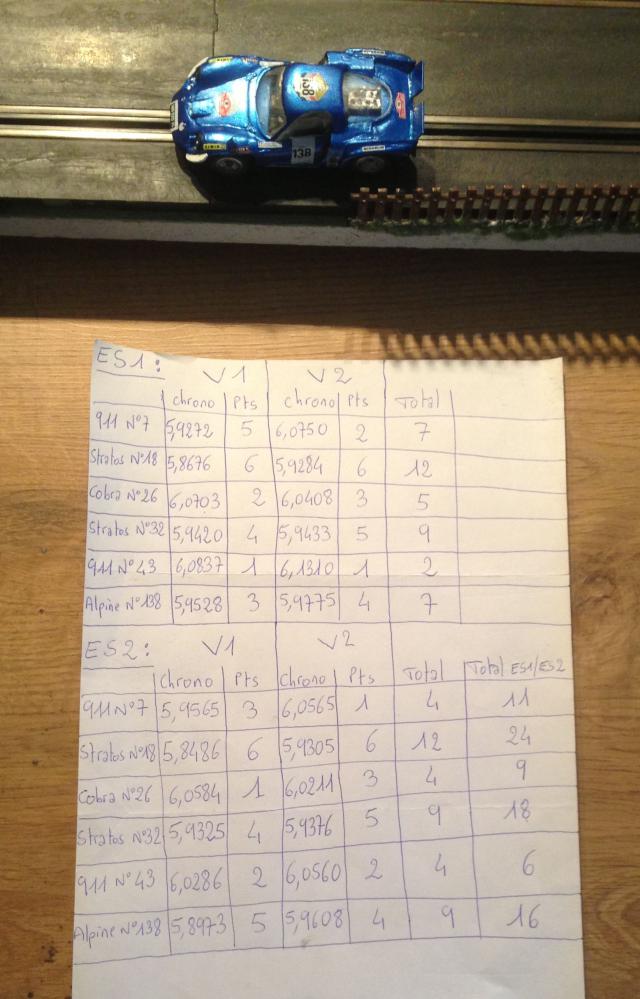 138
138
ES1: V1 V2
Chrono Pts Chrono Pts Total
911 N°7 5,9272 5 6,0750 2 7
Stratos N°18 5,8676 6 5,9284 6 12
Cobra N°26 6,0703 2 6,0408 3 5
Stratos N°32 5,9420 4 5,9433 5 9
911 N°43 6,0837 1 6,1310 1 2
Alpine N°138 5,9528 3 5,9775 4 7
ES2: V1 V2
Chrono Pts Chrono Pts Total Total ES1/ES2
911 N°7 5,9565 3 6,0565 1 4 11
Stratos N°18 5,8486 6 5,9305 6 12 24
Cobra N°26 6,0584 1 6,0211 3 4 9
Stratos N°32 5,9325 4 5,9376 5 9 18
911 N°43 6,0286 2 6,0560 2 4 6
Alpine N°138 5,8973 5 5,9608 4 9 16